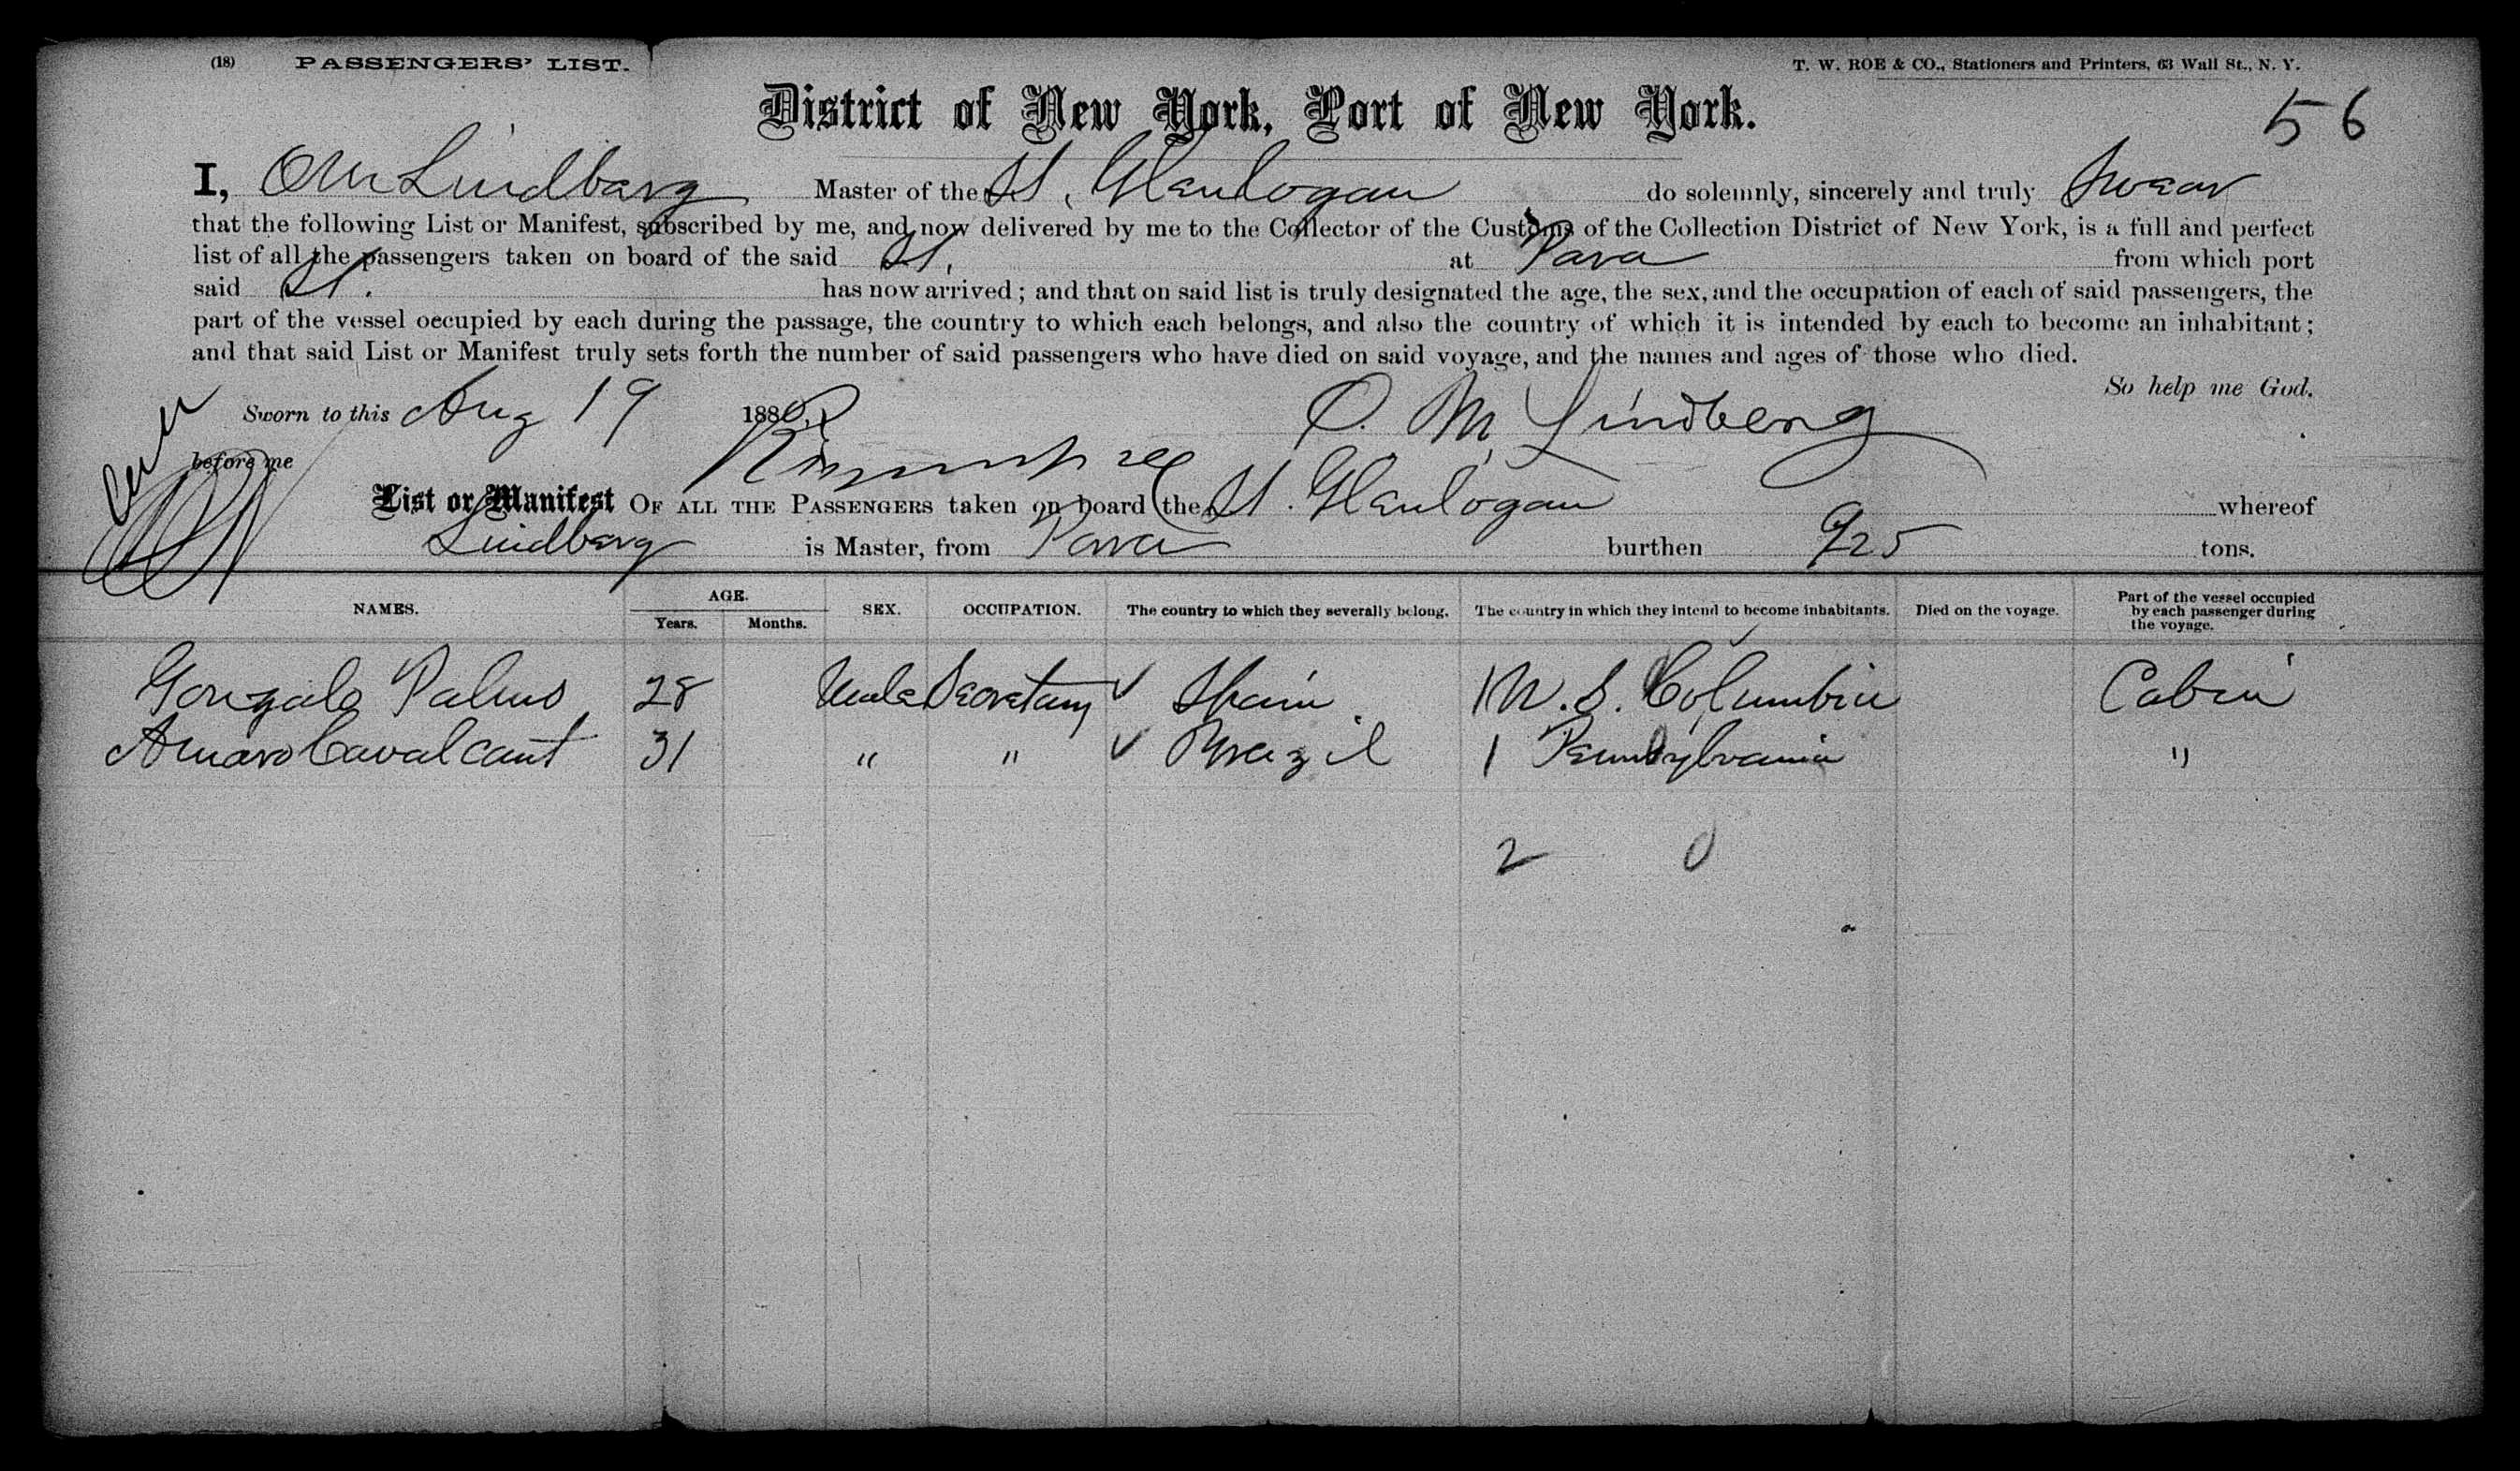 (18) PASSENGERS' LIST.
T. W. ROE & CO., Stationers and Printers, 63 Wall St., N. Y.
District of New York, Port of New York.
56
I, O M Lindberg Master of the St. Glenlogan do solemnly, sincerely and truly Swear
that the following List or Manifest, subscribed by me, and now delivered by me to the Collector of the Customs of the Collection District of New York, is a full and perfect
list of all the passengers taken on board of the said St. at Para from which port
said St. has now arrived; and that on said list is truly designated the age, the sex, and the occupation of each of said passengers, the
part of the vessel occupied by each during the passage, the country to which each belongs, and also the country of which it is intended by each to become an inhabitant;
and that said List or Manifest truly sets forth the number of said passengers who have died on said voyage, and the names and ages of those who died.
So help me God.
Sworn to this Aug 19 1880 O. M. Lindberg
before me
List or Manifest OF ALL THE PASSENGERS taken on board the St. Glenlogan whereof
Lindberg is Master, from Para burthen 925 tons.
NAMES. AGE. Years. Months. SEX. OCCUPATION. The country to which they severally belong. The country in which they intend to become inhabitants. Died on the voyage. Part of the vessel occupied by each passenger during the voyage.
Gonzalo Palms 28 Male Secretary Spain 1 Columbia Cabin
Amaro Cavalcant 31 " " Brazil 1 Pennsylvania "
2 0